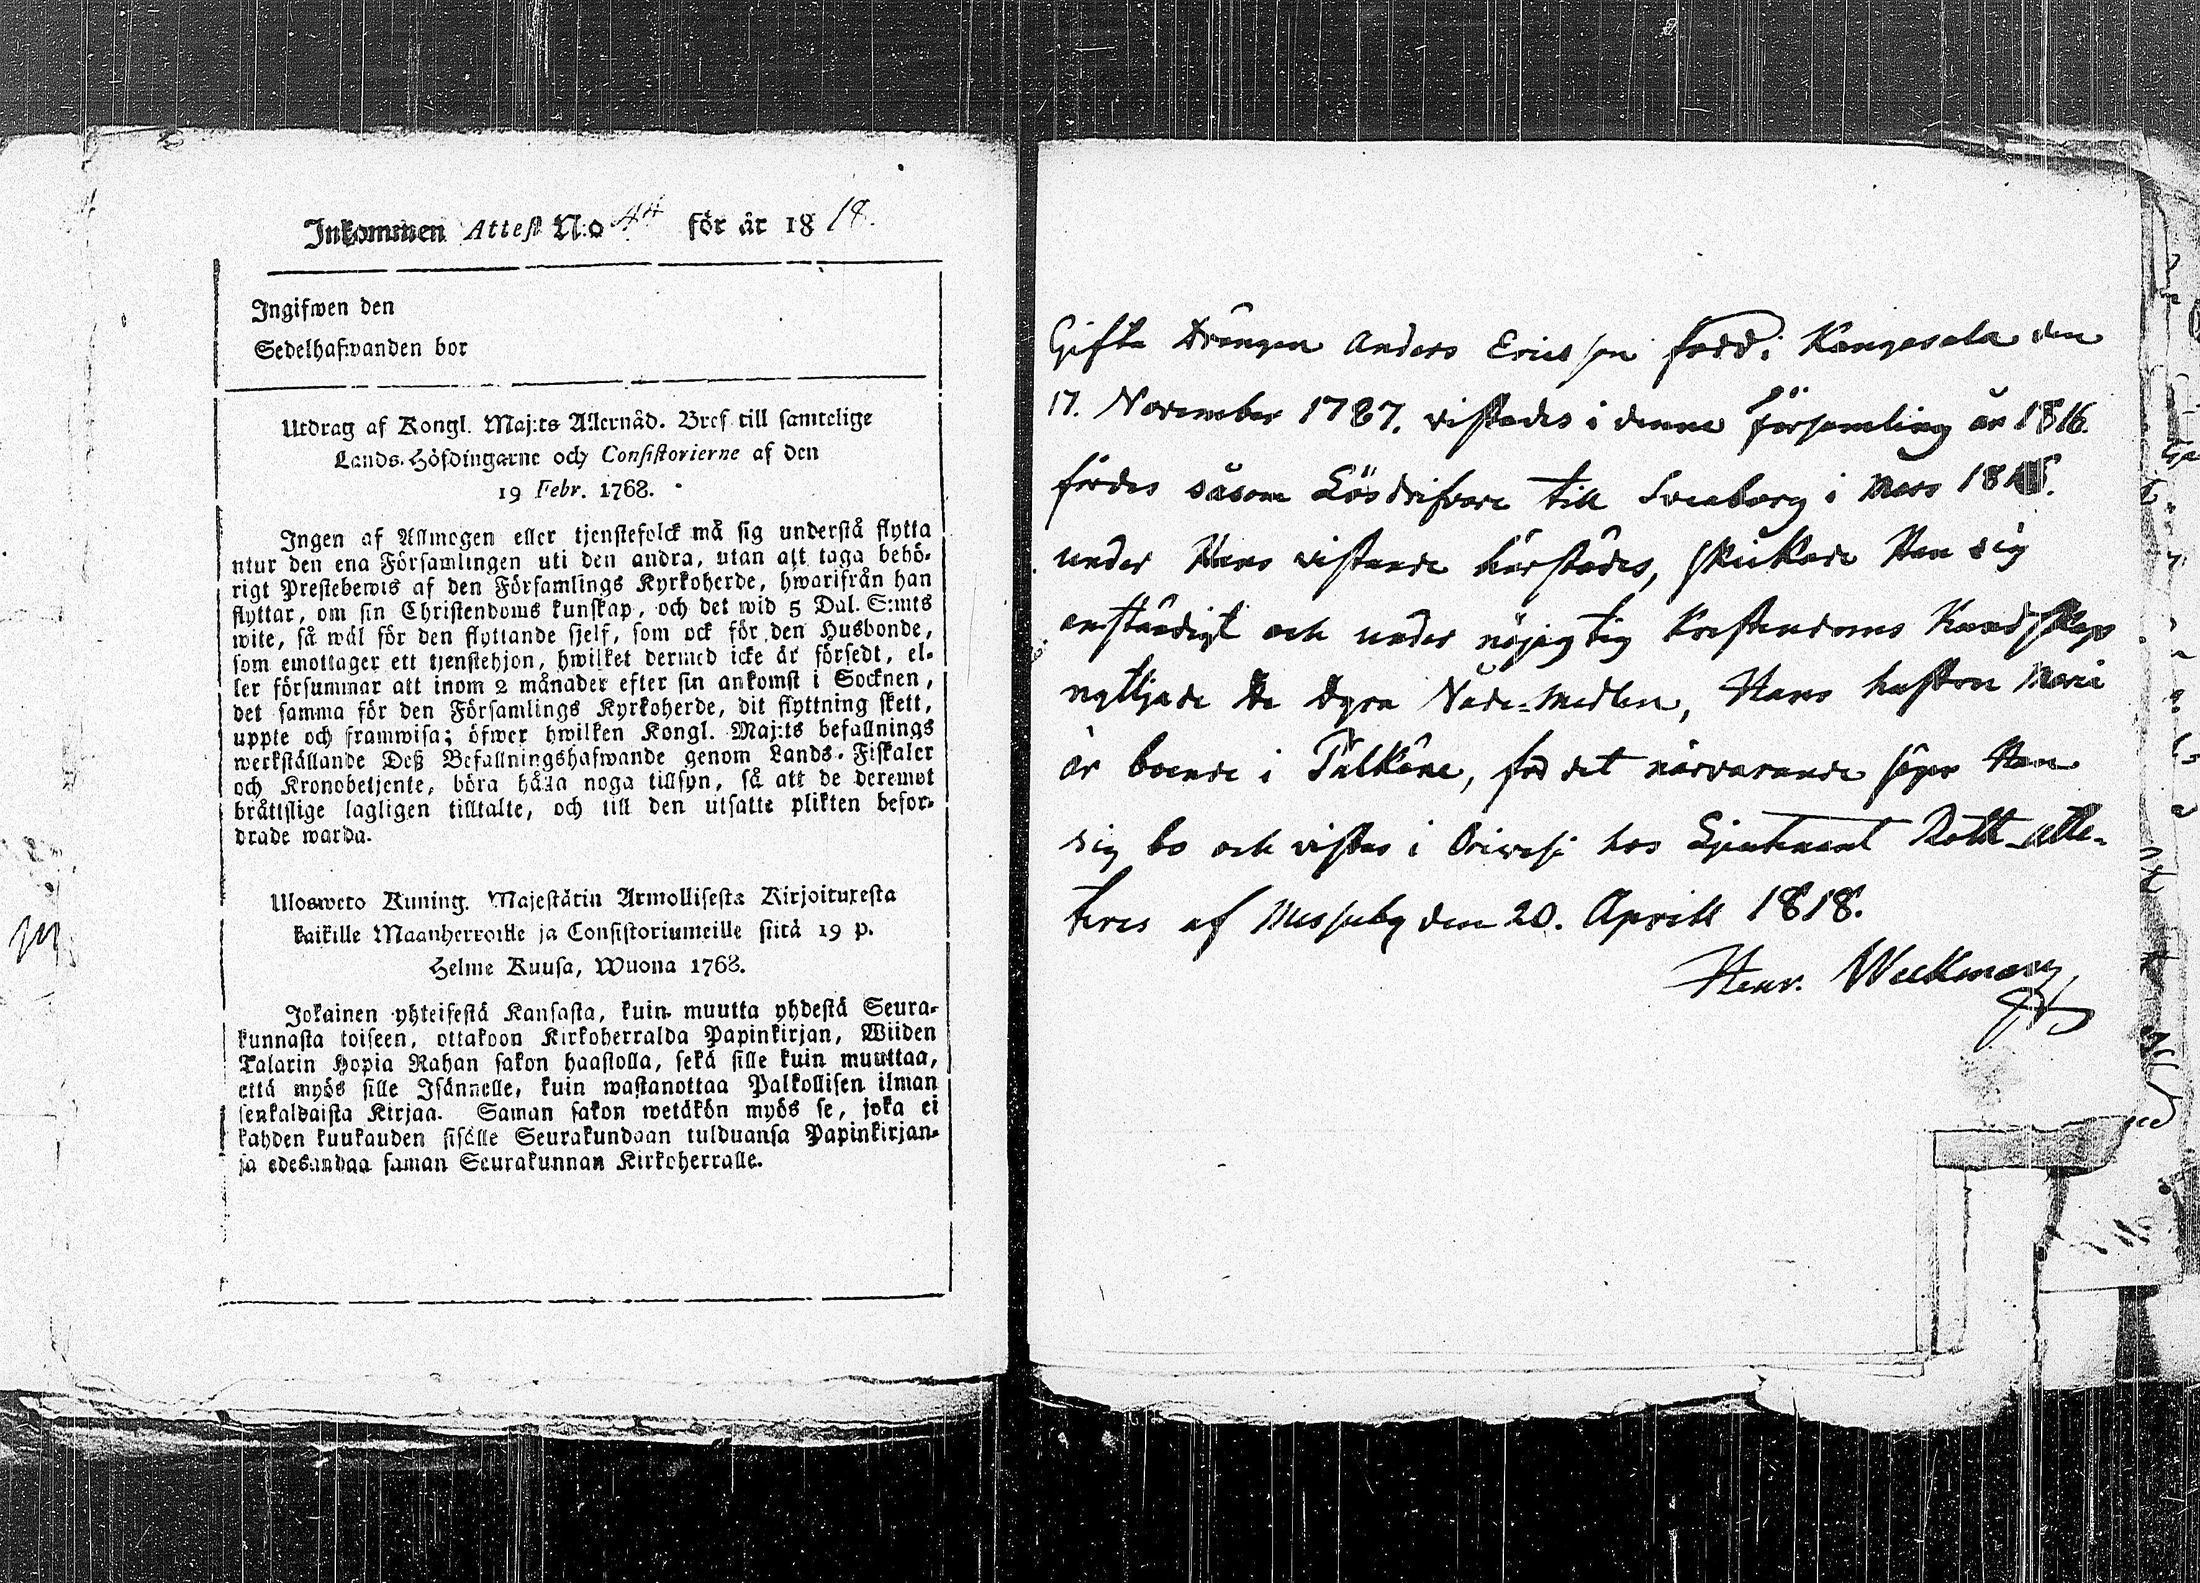 Inkommen Attest N:o 44 för år 1818.
Ingifwen den
Sedelhafwanden bor
Utdrag af Kongl. Maj:ts Allernåd. Bref till samtelige
Lands-Höfdingarne och Consistorierne af den
19 Febr. 1768.
Ingen af Allmogen eller tjenstefolck må sig understå flytta
utur den ena Församlingen uti den andra, utan att taga behö-
rigt Prestebewis af den Församlings Kyrkoherde, hwarifrån han
flyttar, om sin Christendoms kunskap, och det wid 5 Dal. S:mts
wite, så wäl för den flyttande sjelf, som ock för den Husbonde,
som emottager ett tjenstehjon, hwilket dermed icke är försedt, el-
ler försummar att inom 2 månader efter sin ankomst i Socknen,
det samma för den Församlings Kyrkoherde, dit flyttning skett,
uppte och framwisa; öfwer hwilken Kongl. Maj:ts befallnings
werkställande Deß Befallningshafwande genom Lands-Fiskaler
och Kronobetjente, böra hålla noga tillsyn, så att de deremot
bråttslige lagligen tilltalte, och till den utsatte plikten befor-
drade warda.
Ulosweto Kuning. Majestätin Armollisesta Kirjoituxesta
kaikille Maanherroille ja Consistoriumeille siitä 19 p.
Helme Kuusa, Wuona 1768.
Jokainen yhteisestä Kansasta, kuin muutta yhdestä Seura-
kunnasta toiseen, ottakoon Kirkoherralda Papinkirjan, Wiiden
Talarin Hopia Rahan sakon haastolla, sekä sille kuin muuttaa,
että myös sille Isännelle, kuin wastanottaa Palkollisen ilman
senkaldaista Kirjaa. Saman sakon wetäkön myös se, joka ei
kahden kuukauden sisälle Seurakundaan tulduansa Papinkirjan-
sa edesandaa saman Seurakunnan Kirkoherralle.
Gifte Drängen Anders Ericsson född i Kangasala den
17. November 1787. vistades i denne Församling år 1816.
fördes såsom Lösdrifvare till Sveaborg i Mars
under Hans vistande härstädes, skickade Han sig
anständigt och under nöjagtig Kristendoms Kundskap
nyttjade De Dyra Nåde-Medlen, Hans hustru Maria
är boende i Pälkäne, för det närvarande säger Han
sig bo och vistas i Orivesi hos Ljeutenant Rotk atte-
teres af Messuby den 20. Aprill 1818.
Henr. Weckman